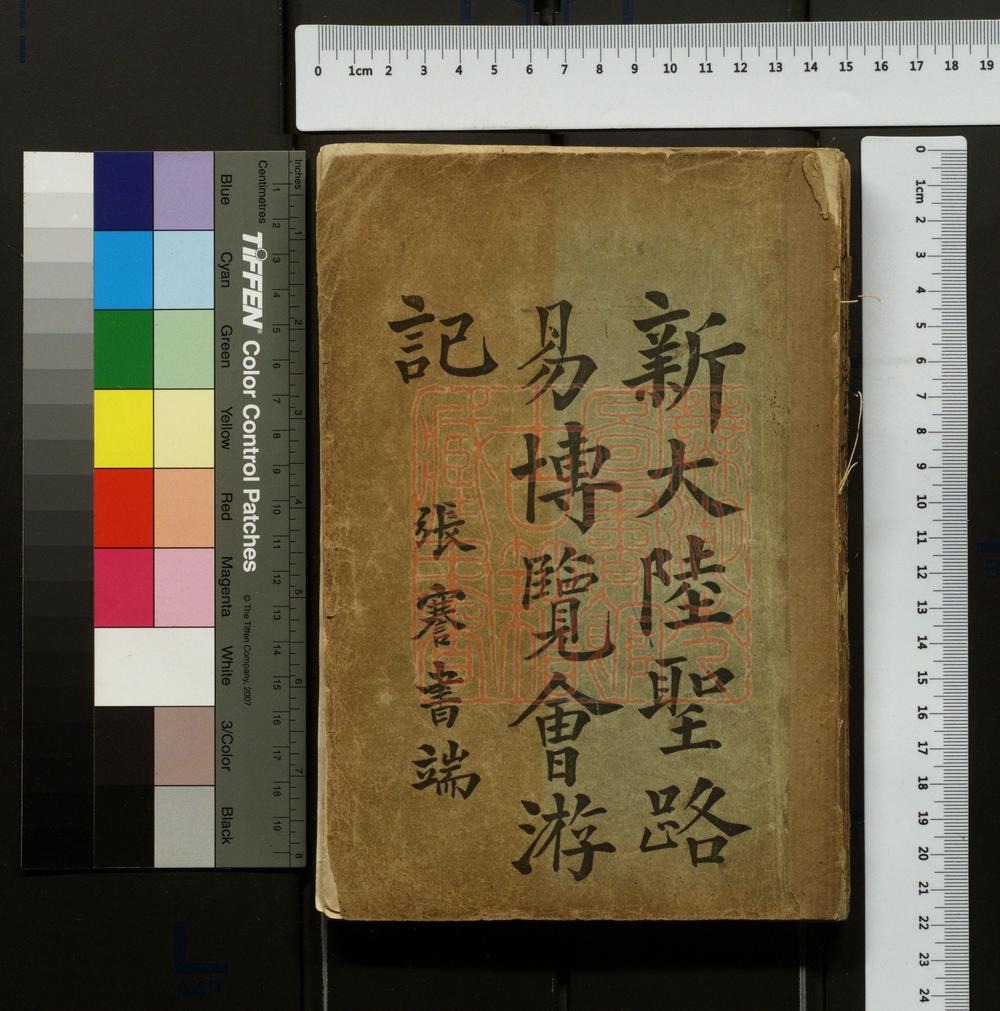 新大陸聖路
易博覽會游
記
張謇書端
0 1cm 2 3 4 5 6 7 8 9 10 11 12 13 14 15 16 17 18 19
0 1cm 2 3 4 5 6 7 8 9 10 11 12 13 14 15 16 17 18 19 20 21 22 23 24
Inches 1 2 3 4 5 6 7 8
Centimetres 1 2 3 4 5 6 7 8 9 10 11 12 13 14 15 16 17 18 19
TIFFEN® Color Control Patches
© The Tiffen Company, 2007
Blue
Cyan
Green
Yellow
Red
Magenta
White
3/Color
Black